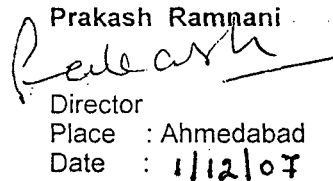 Prakash Ramnani
Prakash
Director
Place : Ahmedabad
Date : 1/12/07